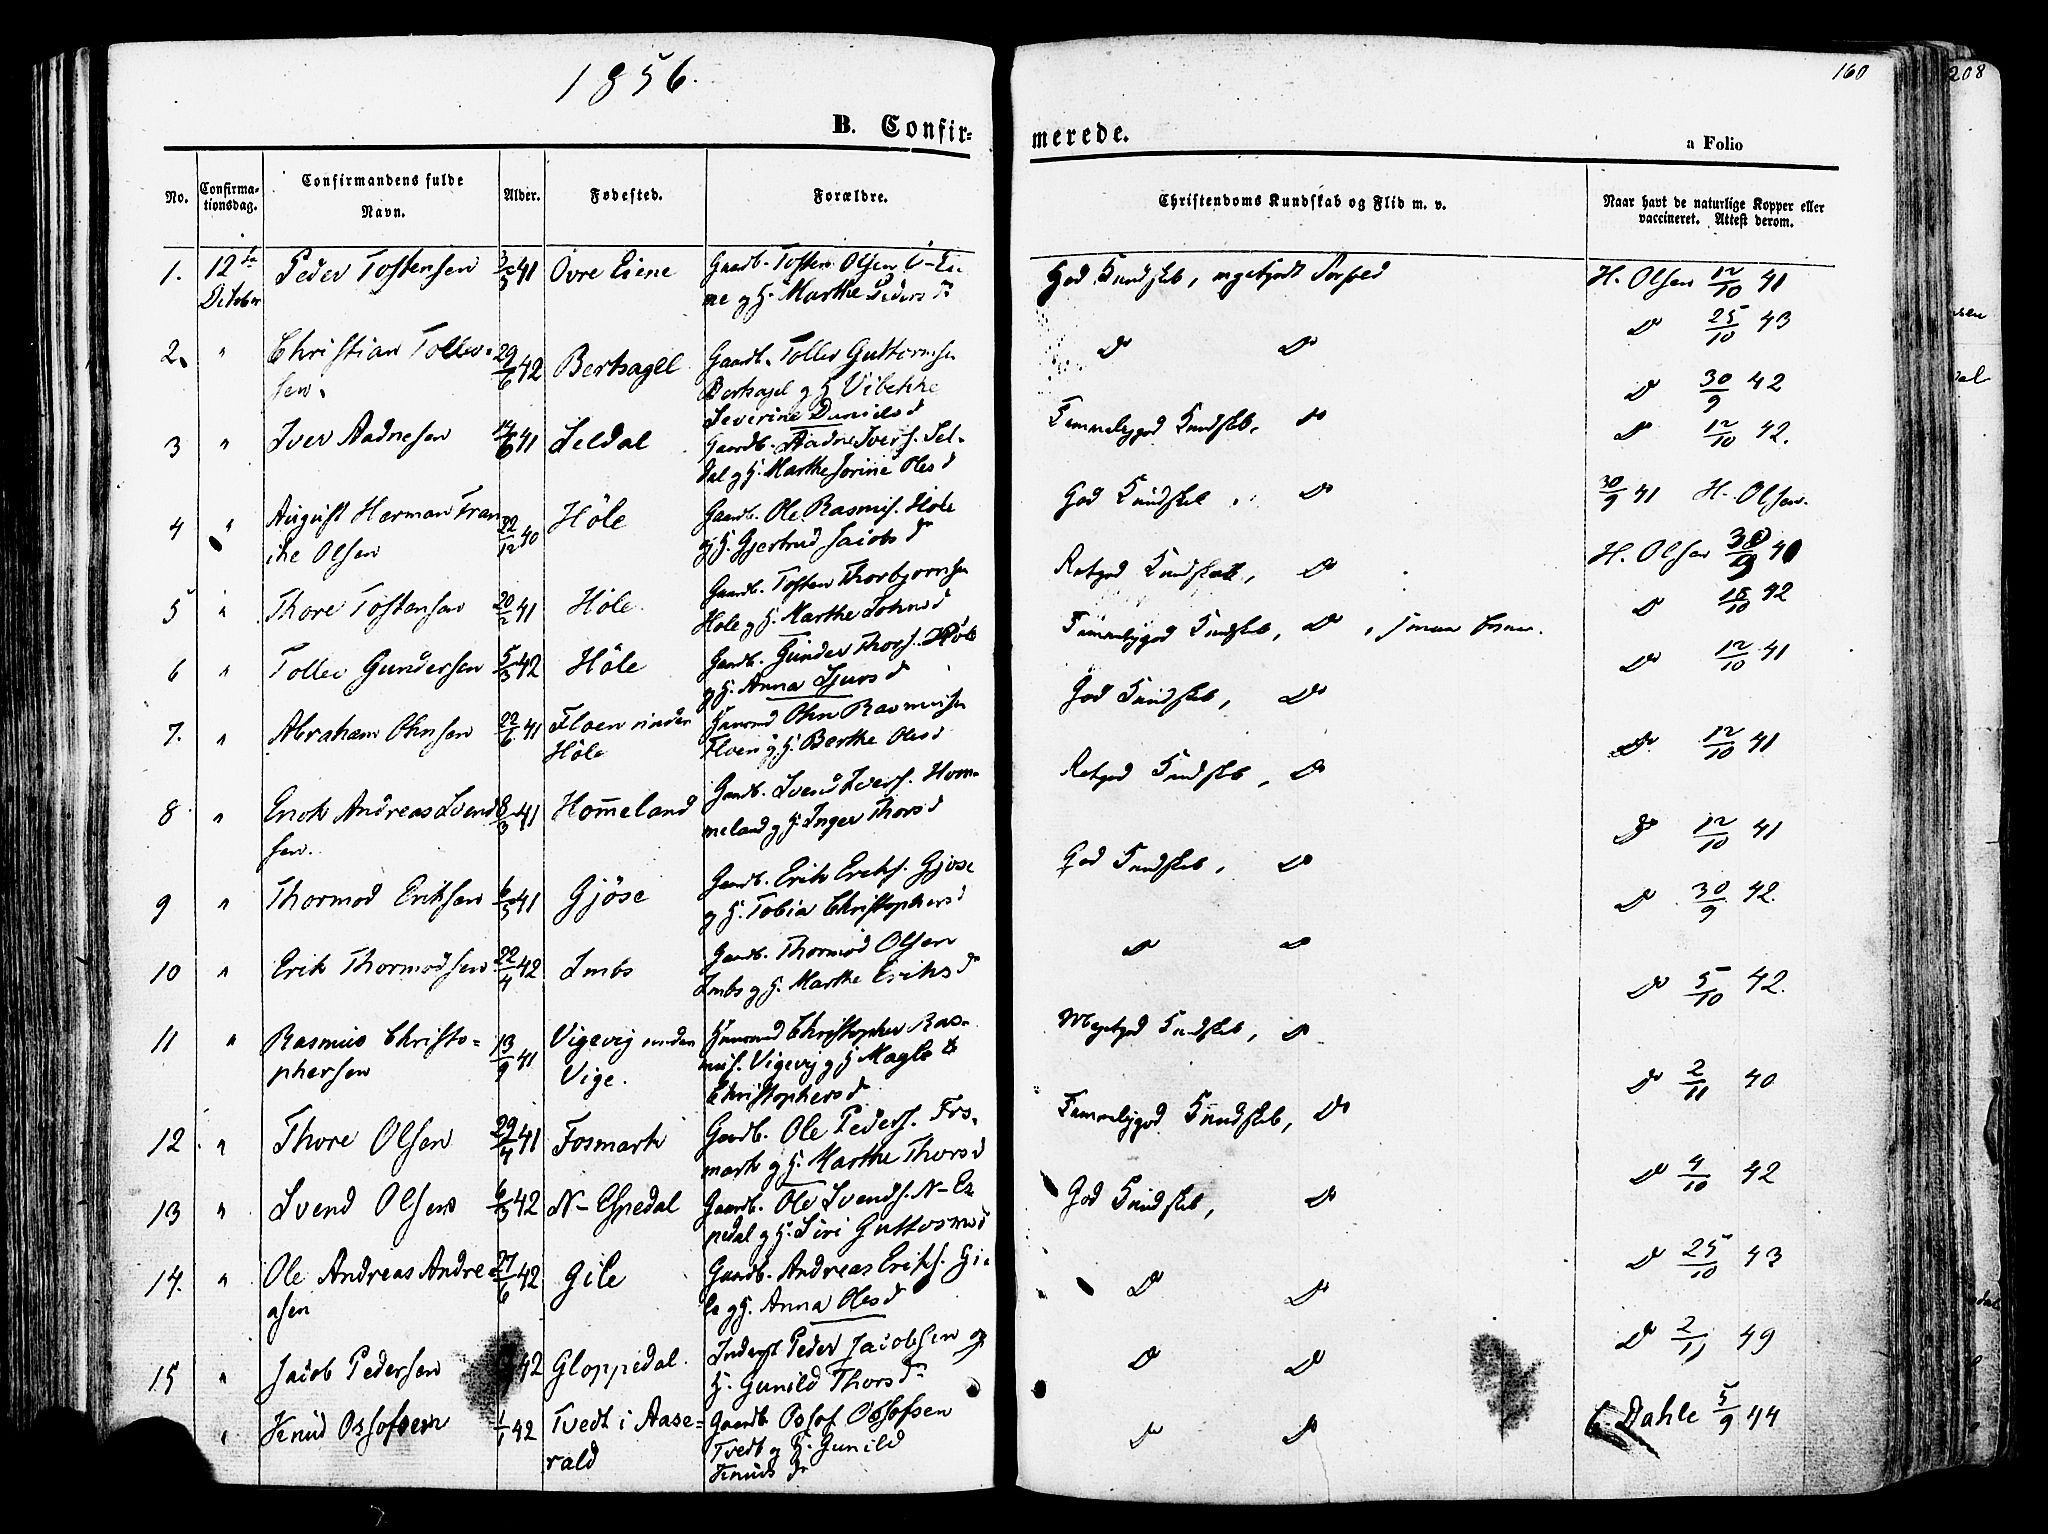 1856.
160
208
B. Confir-
merede.
a Folio
No.
Confirma-
tionsdag.
Confirmandens fulde
Navn.
Alder.
Fødested.
Forældre.
Christendoms Kundskab og Flid m. v.
Naar havt de naturlige Kopper eller
vaccineret. Attest derom.
1. 12te Peder Tostensen 41 Ovre Eiene Gaardb. Tosten Olsen
October Marthe Peders D
God Kundskab, H. Olsen 12/10 41
2. " Christian Tollev- 29/6 42 Bertsagel Gaardb. Tollev Guttormsen
sen. Bertsagel og H. Vibekke
Severine Daniels d
Do Do Do 25/10 43
3 " Iver Aadnesen 41 Seldal Gaardb. Aadne Ivers. Sel-
dal og H. Marthe Serine Oles d
Temmeligod Kundskab, Do Do 30/9 42
Do 12/10 42.
4 " August Herman Fran 22/12 40 Høle Gaardb. Ole Rasmus. Høle
ike Olsen og H. Gjertrud Jacobs d
God Kundskab, Do 30/9 41 H. Olsen.
5 " Thore Tostensen 20/2 41 Høle Gaardb. Tosten Thorbjørnsen
Høle og H. Marthe Johns d
Retgod Kundskab, Do H. Olsen
6 " Tollev Gundersen 5/3 42 Høle Gaardb. Gunder Thors. Høle
og H. Anna Sjurs d
Temmeligod Kundskab, Do Do 18/10 42
7. " Abraham Ohnsen 22/6 41 Floen under Huusmd Ohn Rasmussen
Høle Floen og H. Berthe Oles d
God Kundskab, Do Do 12/10 41
8 " Erick Andreas Svend 8/3 41 Hommeland Gaardb. Svend Ivers. Hom-
sen. meland og H. Inger Thors d
Retgod Kundskab, Do Do 12/10 41
9 " Thormod Eriksen 6/5 41 Gjöse Gaardb. Erik Eriks. Gjöse
og H. Tobia Christophers d
God Kundskab, Do Do 12/10 41
10 " Erik Thormodsen 22/4 42 Imbs Gaardb. Thormod Olsen
Imbs og H. Marthe Eriks d
Do Do Do 30/9 42.
11 " Rasmus Christo- 13/9 41 Vigevig under Huusmd Christopher Ras-
phersen Vige. mus. Vigevig og H. Magle
Christophers d
Megetgod Kundskab, Do Do 5/10 42.
12 " Thore Olsen 29/4 41 Fosmark Gaardb. Ole Peders. Fos-
mark og H. Marthe Thors d
Temmeligod Kundskab, Do Do 2/11 40
13 " Svend Olsen 6/3 42 N-Espedal Gaardb. Ole Svends. N-Es
pedal og H. Siri Guttorms d
God Kundskab, Do Do 4/10 42
14. " Ole Andreas Andre 27/6 42 Gile Gaardb. Andreas Eriks. Gi-
asen le og H. Anna Oles d
Do Do Do 25/10 43
15 " Jacob Pedersen 42 Gloppedal. Inderst Peder Jacobsen og
H. Gunild Thors d
Do Do Do 2/11 49
" Knud Ossofsen 1/1 42 Tvedt i Aase- Gaardb Ossof Ossofsen
rald Tvedt og H. Gunild
Knuds dr
Do Do Dahle 5/9 44